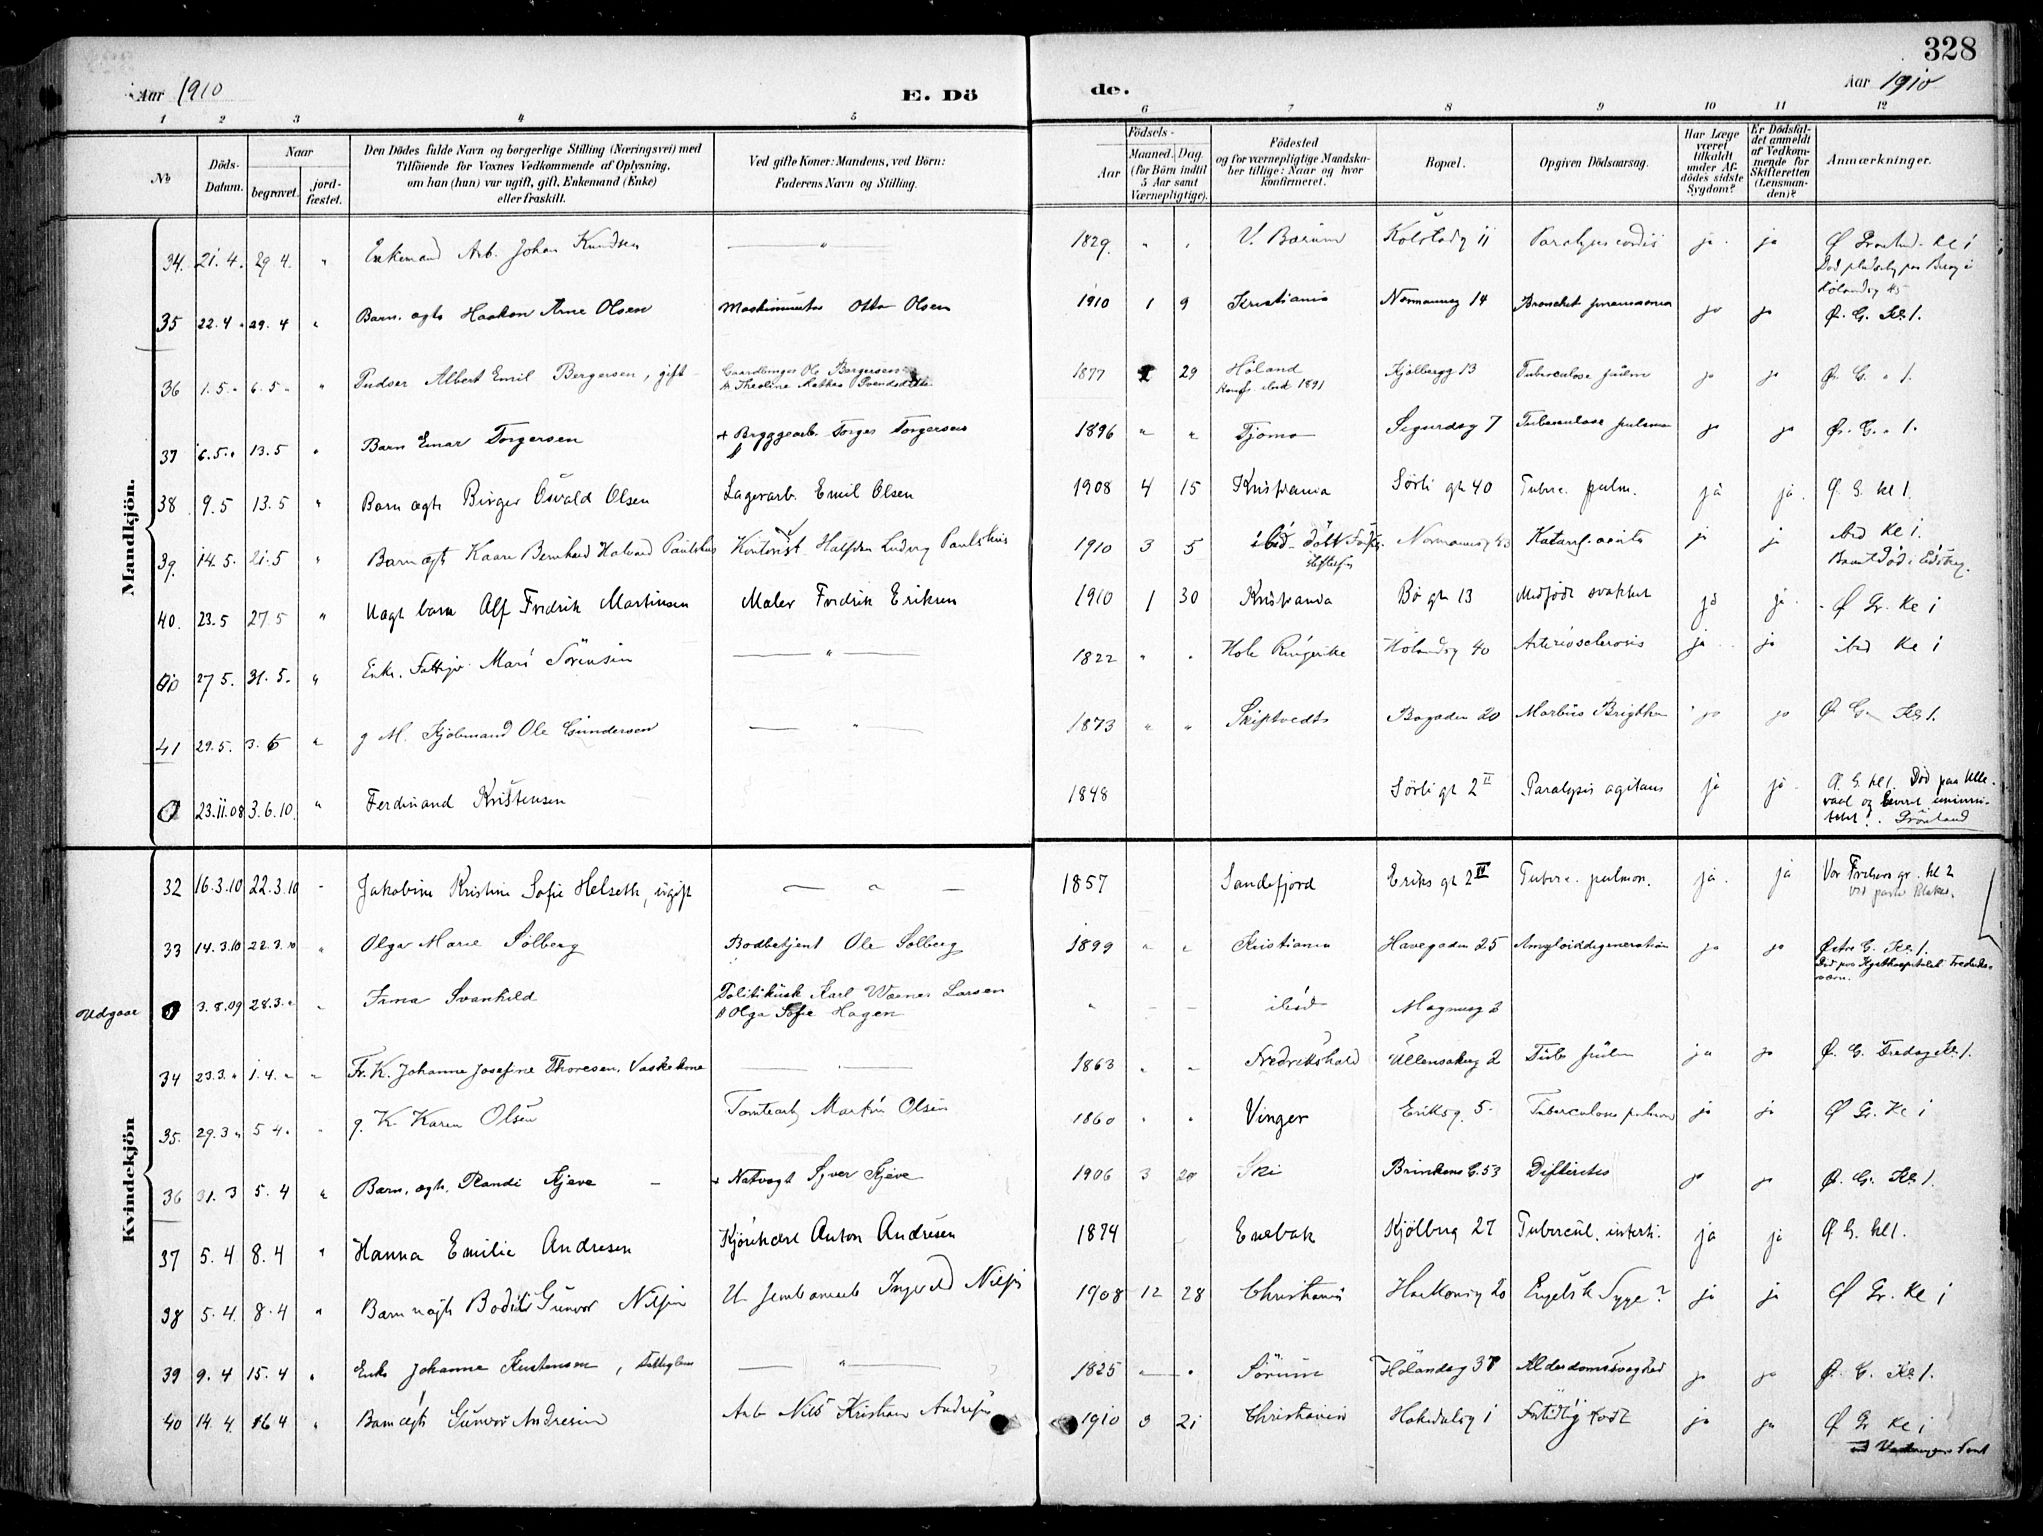 328
Aar 1910 E. Dö de. Aar 1910
1 2 3 4 5 6 7 8 9 10 11 12
№ Döds-Datum. Naar begravet. jord-fæstet. Den Dödes fulde Navn og borgerlige Stilling (Næringsvei) med Tilföiende for Voxnes Vedkommende af Oplysning, om han (hun) var ugift, gift, Enkemand (Enke) eller fraskilt. Ved gifte Koner: Mandens, ved Börn: Faderens Navn og Stilling. Födsels- Aar Maaned. Dag. (for Börn indtil 5 Aar samt Værnepligtige). Födested og for værnepligtige Mandskaber tillige: Naar og hvor konfirmeret. Bopæl. Opgiven Dödsaarsag. Har Læge været tilkaldt under Afdödes sidste Sygdom? Er Dödsfaldet anmeldt af Vedkommende for Skifteretten (Lensmanden)? Anmærkninger.
Mandkjön.
34. 21.4. 29.4. " Enkemand Arb. Johan Knudsen — " — 1829. " . V. Bærum 11 Paralysis cordis ja. ja Ø kl 1
35 22.4. 29.4 " Barn. ægte Haakon Arne Olsen Otto Olsen 1910 1 9 Kristiania 14 ja ja Ø. G. Kl. 1.
36 1.5. 6.5. " Pudser Albert Emil Bergersen, gift 1877 29 Høland Konf. ibid 1891 Kjølbergg 13 Tuberculose pulm ja ja Ø. G. " 1.
37 6.5. 13.5 " Barn Einar Torgersen + Bryggearb. Torger Torgersen 1896 " " Tjømø Sigurdsg 7 Tuberculose pulmon ja ja Ø. G. " 1.
38 9.5 13.5 " Barn ægte Birger Osvald Olsen Lagerarb. Emil Olsen 1908 4 15 Kristiania Sørli gt 40 Tuberc. pulm. ja ja. Ø. G. kl 1.
39. 14.5. 21.5 " Barn ægte Kaare Bernhard Halvard Paulshus Kontorist Halfdan Ludvig Paulshus 1910 3 5 ibid ja ja ibid Kl 1.
40. 23.5 27.5 " Uægt barn Alf Fredrik Martinsen Maler Fredrik Eriksen 1910 1 30 Kristiania Bø gt 13 Medfødt svakhet ja ja. Ø Gr. Kl 1
27 5. 31.5. " Enke. Mari Sørensen — " — 1822 " . Hole Ringerike Hølandsg 40 Arteriosclerosis ja. ja ibid Kl 1
41 29.5. 3.6 " g M. Kjøbmand Ole Gundersen — " — 1873 " " Skiptvedt Bogaden 20 Morbus Brigthii ja ja Ø G. Kl. 1.
23.11.08 3.6.10. " Ferdinand Kristensen 1848 Sørli gt 2 II Paralysis agitans ja ja. Ø. G. kl 1. Død paa Ulle-
Kvindekjön
32 16.3.10 22.3.10 - Jakobine Kristine Sofie Helseth, ugift — " — 1857 Sandefjord Eriks gt 2 II Tuberc. pulmon. ja. ja Vor Frelsers gr. kl 2
33 14.3.10 22.3.10 " Olga Marie Solberg Bodbetjent Ole Solberg 1899 " " Kristiania Havegaden 25 Amyloiddegeneration ja ja Østre G. Kl. 1. Død paa Kysthospitalet Frederiksværn.
Udgaar 3.8.09 28.3. " Irma Svanhild Karl Werner Larsen & Olga Sofie Hagen " — — ibid Magnusg
34 23.3. " 1.4. " " Fr. K. Johanne Josefine Thoresen, Vaskekone — — 1863 " " Fredrikshald Ullensakerg 2 Tub. pulm ja ja Ø. G. Fredag Kl. 1.
35. 29.3 " 5 4. - g. K. Karen Olsen Tomtearb. Martin Olsen 1860 " . Vinger Eriksg. 5. Tuberculose pulmon ja ja Ø Gr. Kl 1
36 31.3 5.4 " Barn. ægte. Randi Skjeve — + Natvagt Syver Skjeve 1906 3 20 Ski 53 Difteritis ja ja Ø. G. Kl. 1.
37 5.4 8.4 " Hanna Emilie Andresen Anton Andresen 1874 Enebak Kjölberg 27 Tubercul. intesti. ja ja Ø G. kl 1.
38 5.4. 8.4 " Barn uægte Bodil Gunvor Nilsen Nilsen 1908 12 28 Christiania Haakonsg 20 Engelsk Syge? ja ja Ø Gr. Kl 1
39 9.4 15.4 . Enke Johanne Kristensen, — " — 1825 — . Sørum Hølandsg 37 Alderdomssvaghed ja ja Ø. G. Kl. 1.
40 14.4. 16.4 " Barn ægte Gunvor Andresen Arb Nils Kristian Andresen 1910 3 21 Christiania Hakedalsg 1 Fortidlig født ja ja Ø Gr Kl 1